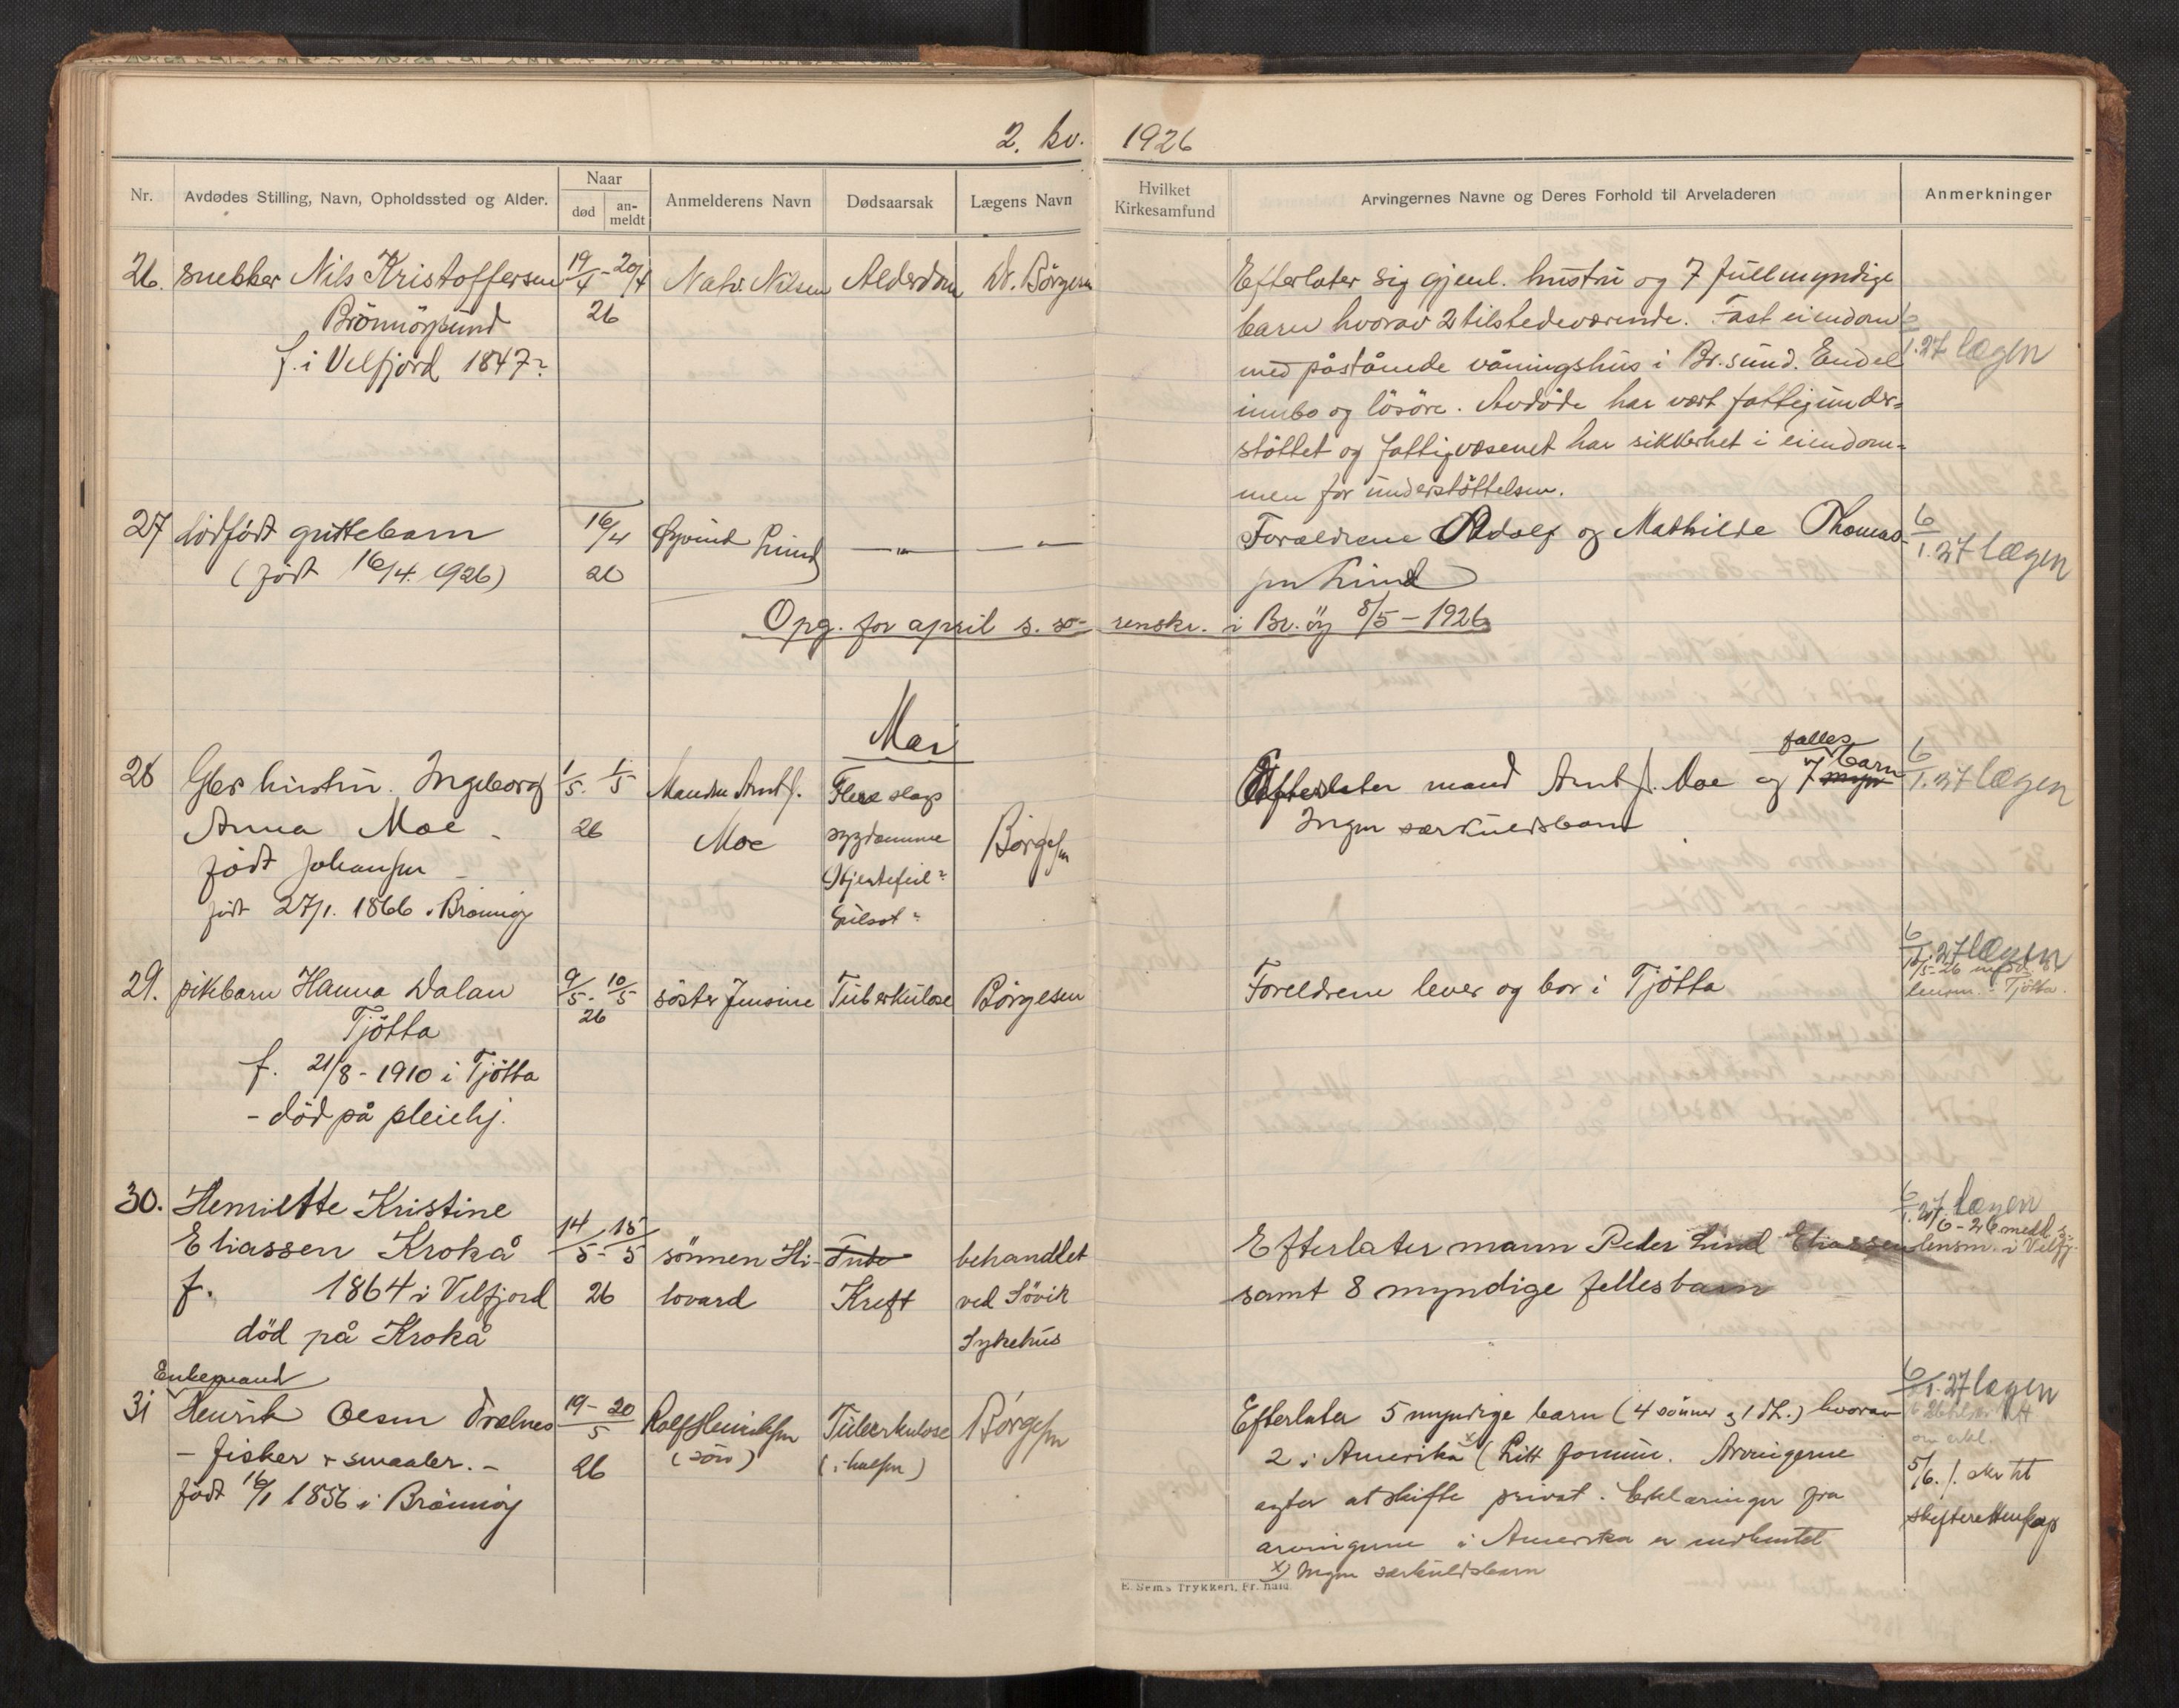 2. kv. 1926
Nr.
Avdødes Stilling, Navn, Opholdssted og Alder.
Naar
død
an-
meldt
Anmelderens Navn
Dødsaarsak
Lægens Navn
Hvilket
Kirkesamfund
Arvingernes Navne og Deres Forhold til Arveladeren
Anmerkninger
26. snekker Nils Kristoffersen 19/4 - 20/4 Nilsen Alderdom Dr. Börgesen
Brönnöysund 26
f. i Velfjord 1847?
Efterlater sig gjenl. hustru og 7 fullmyndige
barn hvorav 2 tilstedeværende. Fast eiendom
med påstånde våningshus i Br.sund. Endel
innbo og lösöre. Avdöde har vært fattigunder-
stöttet og fattigvæsenet har sikkerhet i eiendom-
men for understöttelsen.
6/1.27 lægen
27 dödfödt guttebarn 16/4 Öyvind Lund — " — — " —
(födt 16/4. 1926) 26
Forældrene Adolf og Mathilde Thomas-
sen Lund
6/1.27 lægen
Opg. for april s. so- renskr. i Br.öy 8/5 - 1926
Mai
28 Gbr hustru. Ingeborg 1/5. 1/5 Manden Arnt J. Flere slags
Anna Moe - 26 Moe sygdomme Börgesen
född Johansen - Hjertefeil?
födt 27/1. 1866 i Brönnöy Gulsot?
Efterlater mand Arnt J. Moe og 7 myn fælles barn
Ingen særkuldsbarn
6/1.27 lægen
29. pikebarn Hanna Dalan 9/5 - 10/5 söster Jensine Tuberkulose Börgesen
Tjötta 26
f. 21/8 - 1910 i Tjötta
- död på pleiehj.
Foreldrene lever og bor i Tjötta
6/1.27 lægen
lensm. i Tjötta.
30. Henriette Kristine
Eliassen Krokå 14/5 - 15/5 sönnen Hi- Tube behandlet
f. 1864 i Velfjord 26 lovard Kreft ved Sövik
död på Krokå Sykehus
Efterlater mann Peder Lind Eliassen
samt 8 myndige fellesbarn
6/1.27 lægen
6 - 26 medd.
lensm. i Velfj.
Enkemand
31 Henrik Olsen Trælnes 19 - 20/5 Rolf Henriksen Tuberkulose Börgesen
- fisker & smaabr. - 26 (sön) (i halsen)
födt 16/1 1856 i Brönnöy
Efterlater 5 myndige barn (4 sönner og 1 dt.) hvorav
2 i Amerika x) Litt formue. Arvingerne
agter at skifte privat. Erklæringer fra
arvingerne i Amerika er indhentet
x) Ingen særkuldsbarn
6/1.27 lægen
om erkl.
5/6. f. skr til
skifteretten
E. Sems Trykkeri, Fr.hald.